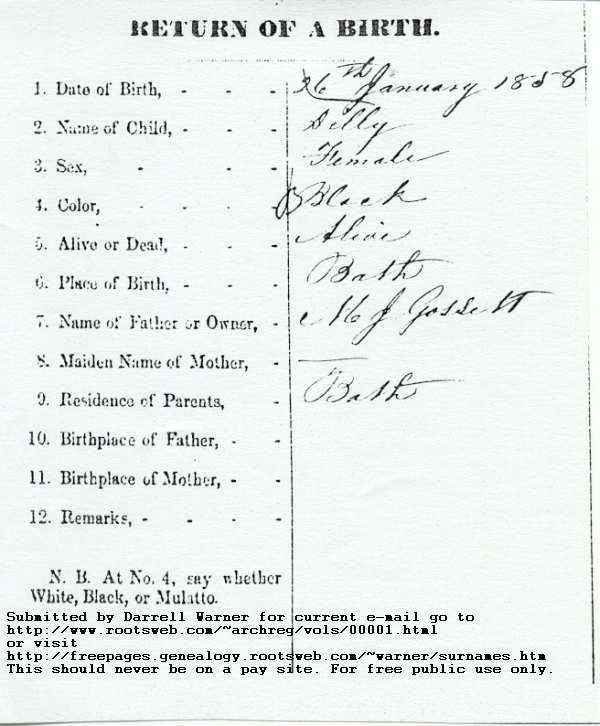 RETURN OF A BIRTH.
1. Date of Birth, - - - 26th January 1858
2. Name of Child, - - - Dilly
3. Sex, - - - Female
4. Color, - - - - Black
5. Alive or Dead, - - - Alive
6. Place of Birth, - - - Bath
7. Name of Father or Owner, - M J Gossett
8. Maiden Name of Mother, - —
9. Residence of Parents, - Bath
10. Birthplace of Father, - -
11. Birthplace of Mother, - -
12. Remarks, - - - -
N. B. At No. 4, say whether
White, Black, or Mulatto.
Submitted by Darrell Warner for current e-mail go to
http://www.rootsweb.com/~archreg/vols/00001.html
or visit
http://freepages.genealogy.rootsweb.com/~warner/surnames.htm
This should never be on a pay site. For free public use only.